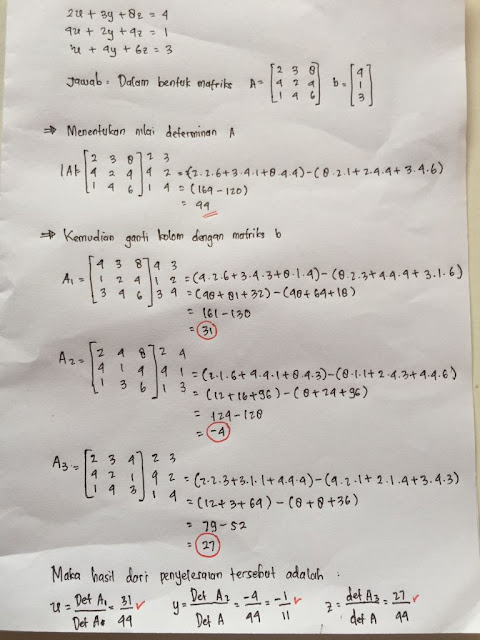 2x + 3y + 8z = 4
4x + 2y + 4z = 1
x + 4y + 6z = 3
Jawab = Dalam bentuk matriks A = [2 3 8 b = [4
4 2 4 1
1 4 6] 3]
⇒ Menentukan nilai determinan A
[2 3 8] 2 3
|A|= 4 2 4 4 2 = (2.2.6+3.4.1+8.4.4)-(8.2.1+2.4.4+3.4.6)
1 4 6 1 4 = (164-120)
= 44
⇒ Kemudian ganti kolom dengan matriks b
[4 3 8] 4 3
A1 = 1 2 4 1 2 = (4.2.6+3.4.3+8.1.4)-(8.2.3+4.4.4+3.1.6)
3 4 6 3 4 = (48+81+32)-(48+64+18)
= 161-130
= 31
A2 = [2 4 8] 2 4
4 1 4 4 1 = (2.1.6+4.4.1+8.4.3)-(8.1.1+2.4.3+4.4.6)
1 3 6 1 3 = (12+16+96)-(8+24+96)
= 124-128
= -4
A3 = [2 3 4] 2 3
4 2 1 4 2 = (2.2.3+3.1.1+4.4.4)-(4.2.1+2.1.4+3.4.3)
1 4 3 1 4 = (12+3+64)-(8+8+36)
= 79-52
= 27
Maka hasil dari penyelesaian tersebut adalah :
x = Det A1/Det A = 31/44 ✓ y = Det A2/Det A = -4/44 = -1/11 ✓ z = det A3/det A = 27/44 ✓